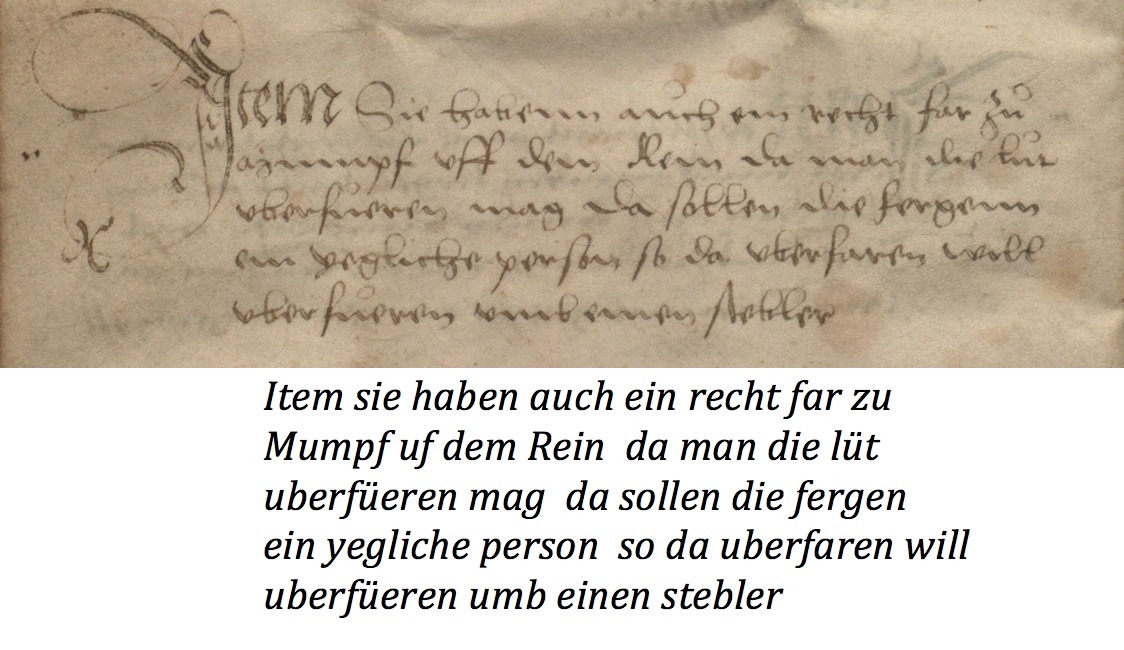 Item Sie habenn auch ein recht far zu
Mumpf vff dem Rein da man die lüt
vberfüeren mag da sollen die fergenn
ein yegliche person so da vberfaren will
vberfüeren vmb einen stebler
Item sie haben auch ein recht far zu
Mumpf uf dem Rein da man die lüt
uberfüeren mag da sollen die fergen
ein yegliche person so da uberfaren will
uberfüeren umb einen stebler